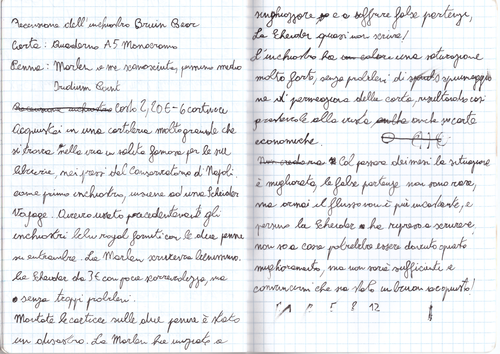 Recensione dell'inchiostro Bruin Beer
Carta: Quaderno A5 Monocromo
Penna: Marlen a me sconosciuta, pennino medio
Iridium Point
Costo 2,20€ - 6 cartucce
Acquistai in una cartoleria molto grande che
si trova nella via un solito famosa per le sue
librerie, nei pressi del Conservatorio di Napoli,
come primo inchiostro, insieme ad una Scheider
Voyage. Avevo usato precedentemente gli
inchiostri blu royal forniti con le due penne
su entrambe. La Marlen scriveva benissimo.
La Sheider da 3€ con poca scorrevolezza, ma
senza troppi problemi.
Montate le cartucce sulle due penne è stato
un disastro. La Marlen ha iniziato a
singhiozzare e a soffrire false partenze,
La Sheider quasi non scrive!
L'inchiostro ha una saturazione
molto forte, senza problemi di spiumaggio
ne di permeazione della carta, risultando così
piacevole alla vista anche su carte
economiche.
Col passare dei mesi la situazione
è migliorata, le false partenze non sono rare,
ma ormai il flusso non è più incostante, e
persino la Sheider ha ripreso a scrivere,
non so a cosa potrebbe essere dovuto questo
miglioramento, ma non sarà sufficiente a
convincermi che sia stato un buon acquisto!
5 8 12